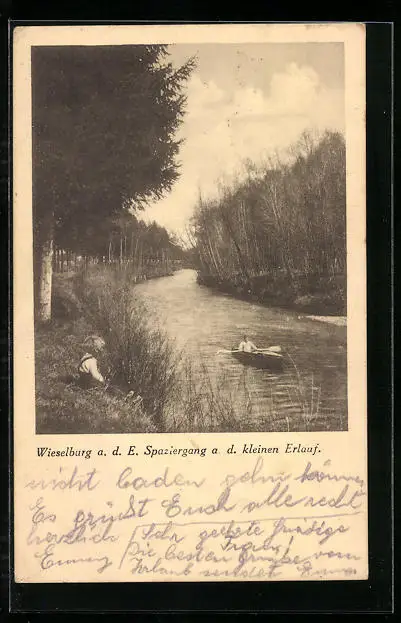 Wieselburg a. d. E. Spaziergang a. d. kleinen Erlauf.
nicht baden gehn können
Es grüßt Euch alle recht
herzlich Sehr geehrte gnädige
Emmy Die besten Grüße vom
Urlaub sendet